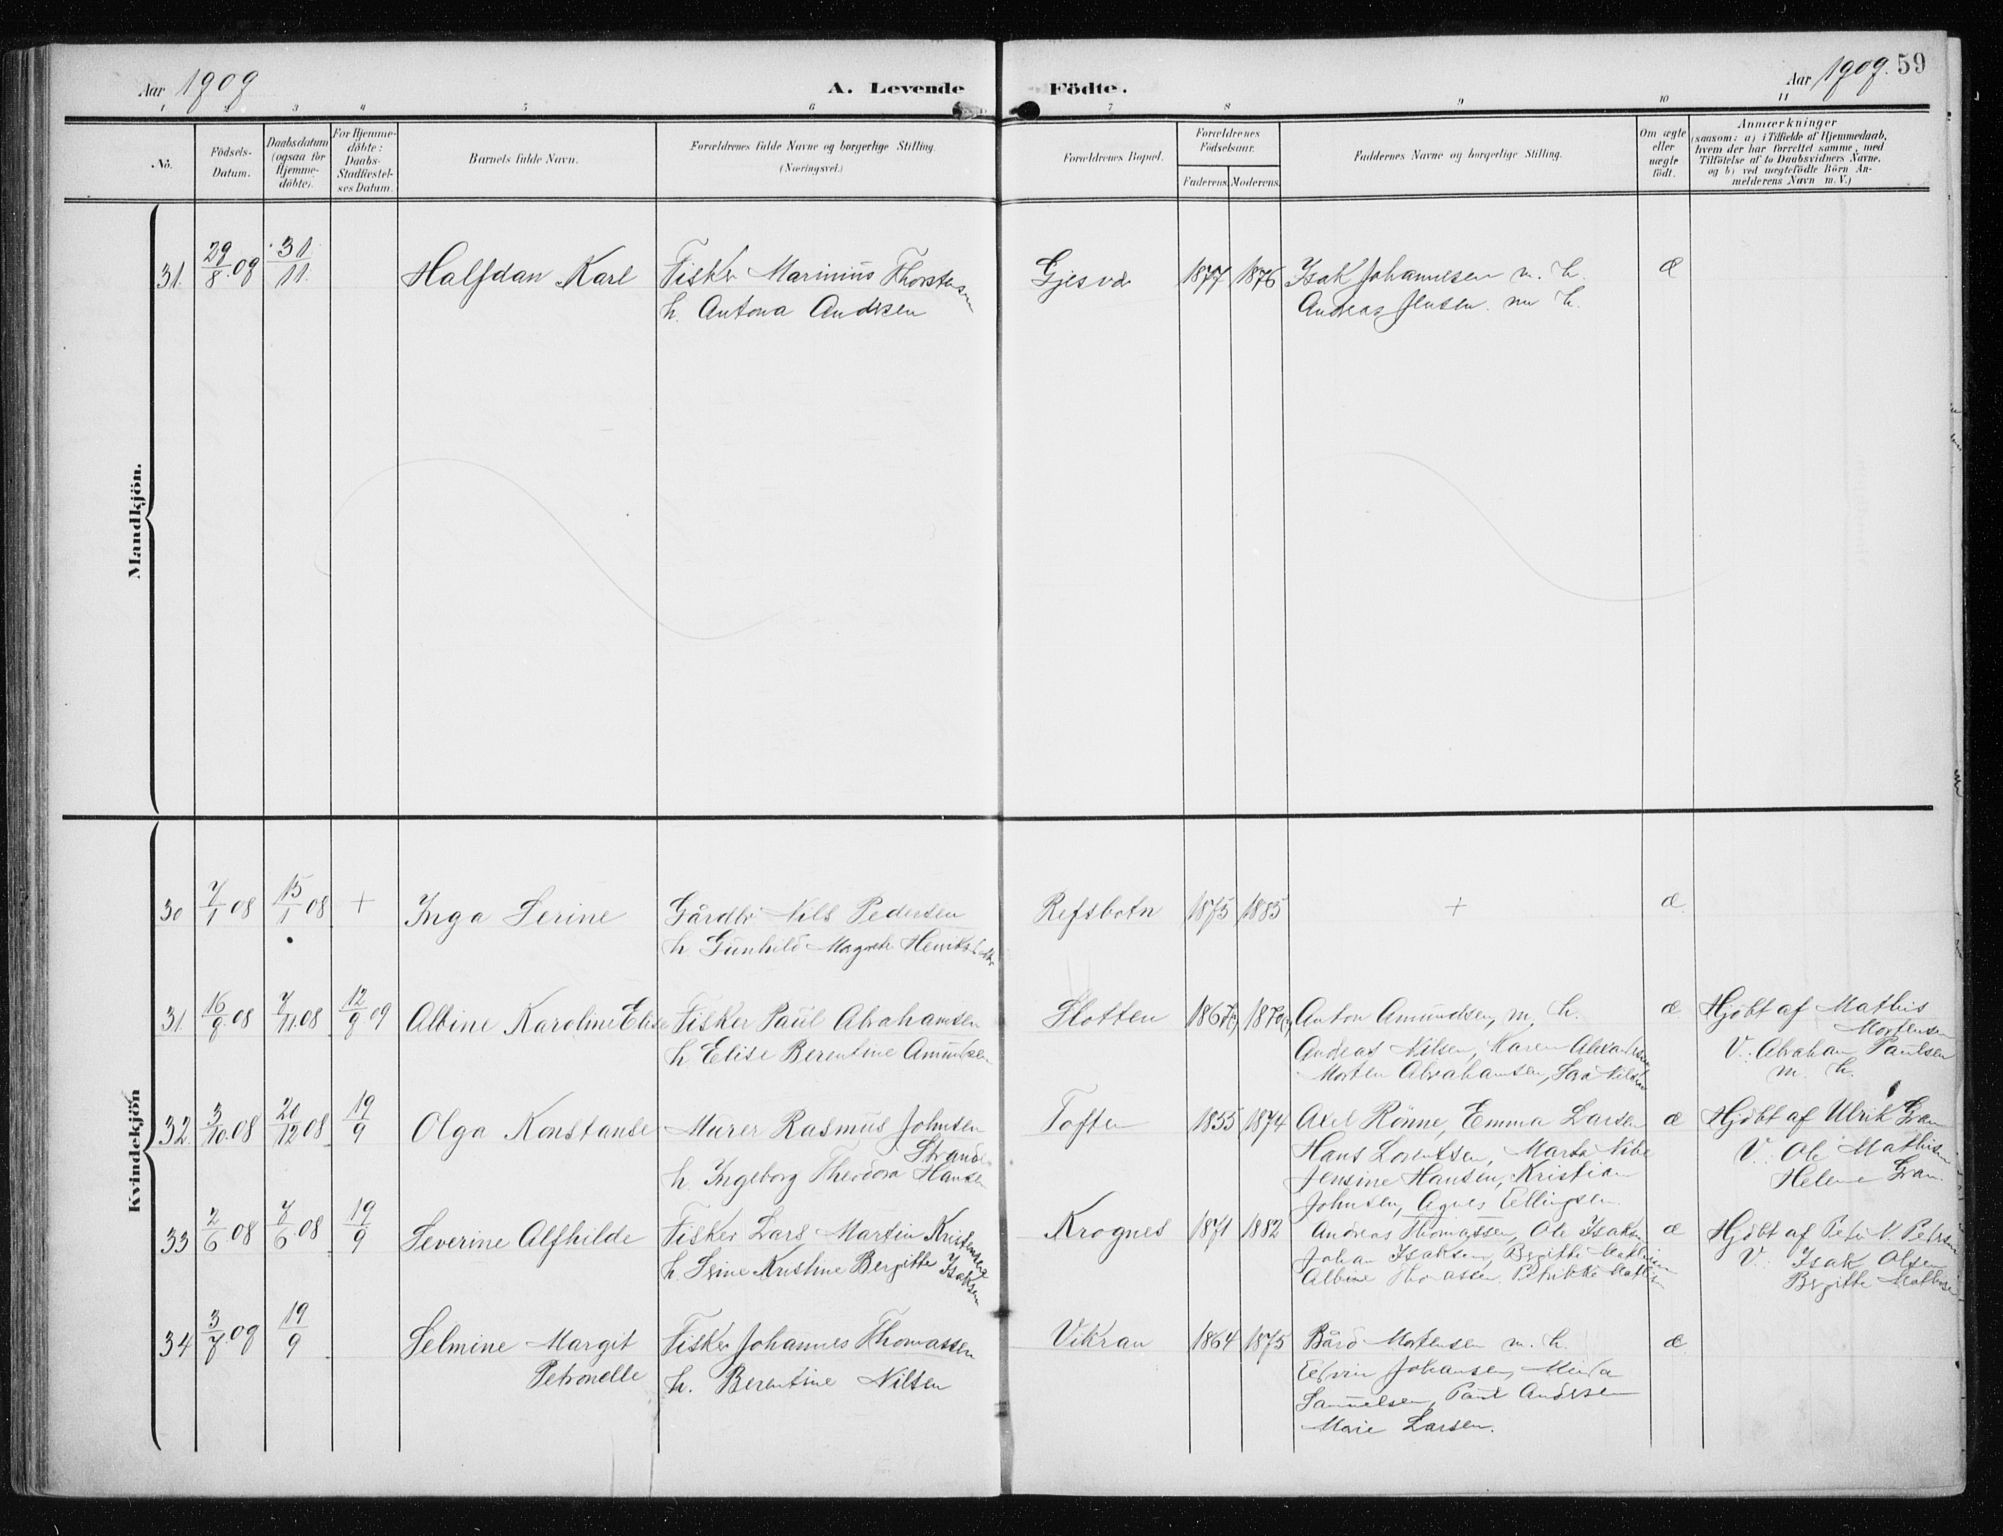 Aar 1909
A. Levende
Födte.
Aar 1909.
59
1 2 3 4 5 6 7 8 9 10 11
No.
Födsels-
Datum.
Daabsdatum
(ogsaa for
Hjemme-
döbte).
For Hjemme-
döbte:
Daabs-
Stadfæstel-
ses Datum.
Barnets fulde Navn.
Forældrenes fulde Navne og borgerlige Stilling.
(Næringsvei.)
Forældrenes Bopæl.
Forældrenes
Födselsaar.
Faderens. Moderens.
Faddernes Navne og borgerlige Stilling.
Om ægte
eller
uægte
födt.
Anmærkninger
(saasom: a) i Tilfælde af Hjemmedaab,
hvem der har forrettet samme, med
Tilföielse af to Daabsvidners Navne,
og b) ved uægtefödte Börn An-
melderens Navn m. V.)
Mandkjön.
31. 29/8.09 31/11. Halfdan Karl Fisker Marinius Thorstensen Gjesvær 1877 1876 Isak Johannesen m. h. æ
h. Antona Andersen Andreas Jensen m h.
Kvindekjön
30 7/1 08 15/1 08 + Inga Serine Gårdbr Nils Pedersen Refsbotn 1875 1885 + æ.
h. Gunhild Magrete
31. 16/9.08 7/11.08 12/9 09 Albine Karoline Elise Fisker Paul Abrahamsen Slotten Anton Amundsen, m. h. æ Hjdbt af Mathis
h. Elise Berentine Amundsen Andreas Nilsen, Karen Mortensen
Morten Abrahamsen, V. Abraham Paulsen
m. h.
32. 3/10.08 20/12 08 19/9 Olga Konstanse Murer Rasmus Johnsen Toften 1855 1874 Axel Rönne, Emma Larsen æ Hjdbt af Ulrik Gran
Strand Hans Lorentsen, Marta V. Ole Mathisen
h. Ingeborg Theodora Hansen Jensine Hansen, Kristian Helene Gran.
Johnsen, Agnes Ellingsen.
33 2/6 08 7/6 08 19/9 Severine Alfhilde Fisker Lars Martin Krognes 1871 1882 Andreas Thomassen, Ole Isaksen æ Hjdbt af Peter N. Petersen
h. Kristine Bergitte Isaksen Johan Isaksen, Bergitte Mathisen V. Isak Olsen
Albine Thomassen. Bergitte Mathisen
34 3/7.09 19/9 Selmine Margit Fisker Johannes Thomassen Vikran 1864 1875 Bård Mortensen m. h. æ.
Petronelle h. Berentine Nilsen Edvin Johansen,
Samuelsen, Paul Andersen
Marie Larsen.